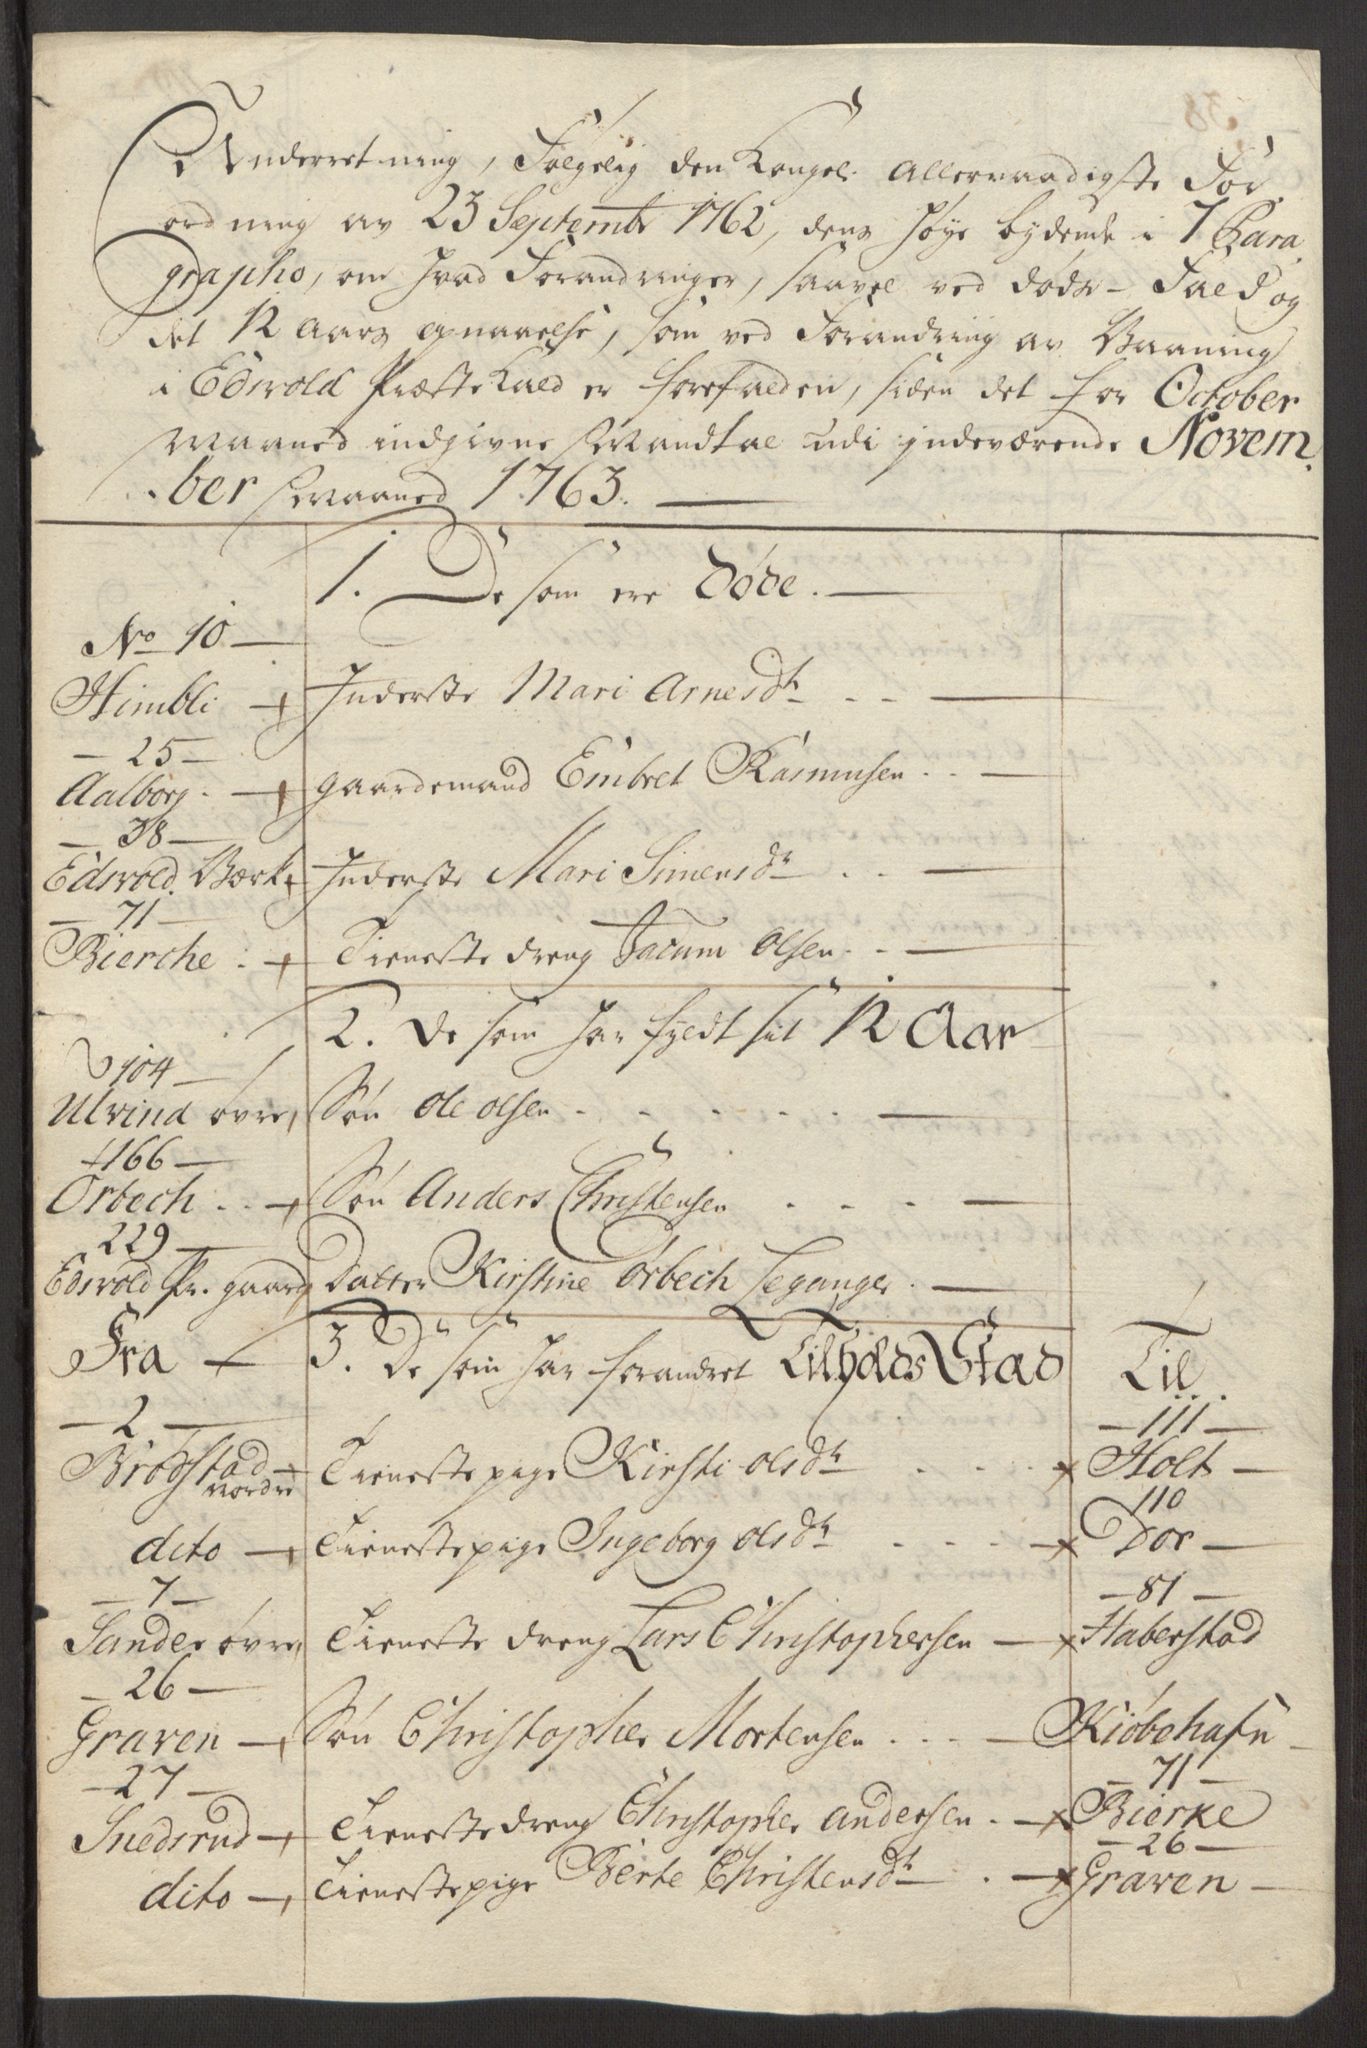 Underretning, Følgelig den Kongel: Allernaadigste For,,
ordning av 23 Septembr 1762, dens høye bydende i 7 Para,,
grapho, om hvad Forandringer, saavel ved døds-Fald og
det 12 Aars opnaaelse, som ved Forandring av Vaaning
i Edsvold Præste Kald er forefalden, siden det for October
Maaned indgivne Mandtal udi indeværende Novem,,
ber Maaned 1763.
1. De som ere Døde.
No 10
Himbli Inderste Mari Arnesdtr
25
Aalborg. Gaardemand Embret Rasmusen
38
Edsvold Værk Inderste Mari Simensdr
71
Bierche Tieneste dreng Jacum Olsen
2. De som har fyldt sit 12 Aar
104
Ulvind øvre Søn Ole Olsen
166
Ørbech Søn Anders Christensen
229
Edsvold Pr. gaard Datter Kirstine Ørbech Leganger
Fra 3. De som har forandret Tilholds Stad Til
2 111
Brodstad nordre Tienestepige Kirsti Olsdtr Holt
110
dito Tienestepige Ingeborg Olsdtr Dor
7 81
Sander øvre Tieneste dreng Lars Christophersen Haberstad
26
Graven Søn Christopher Mortensen Kiøbehafn
27 71
Snedsrud Tienestedreng Christopher Andersen Bierke
26
dito Tienestepige Berte Christensdtr Graven